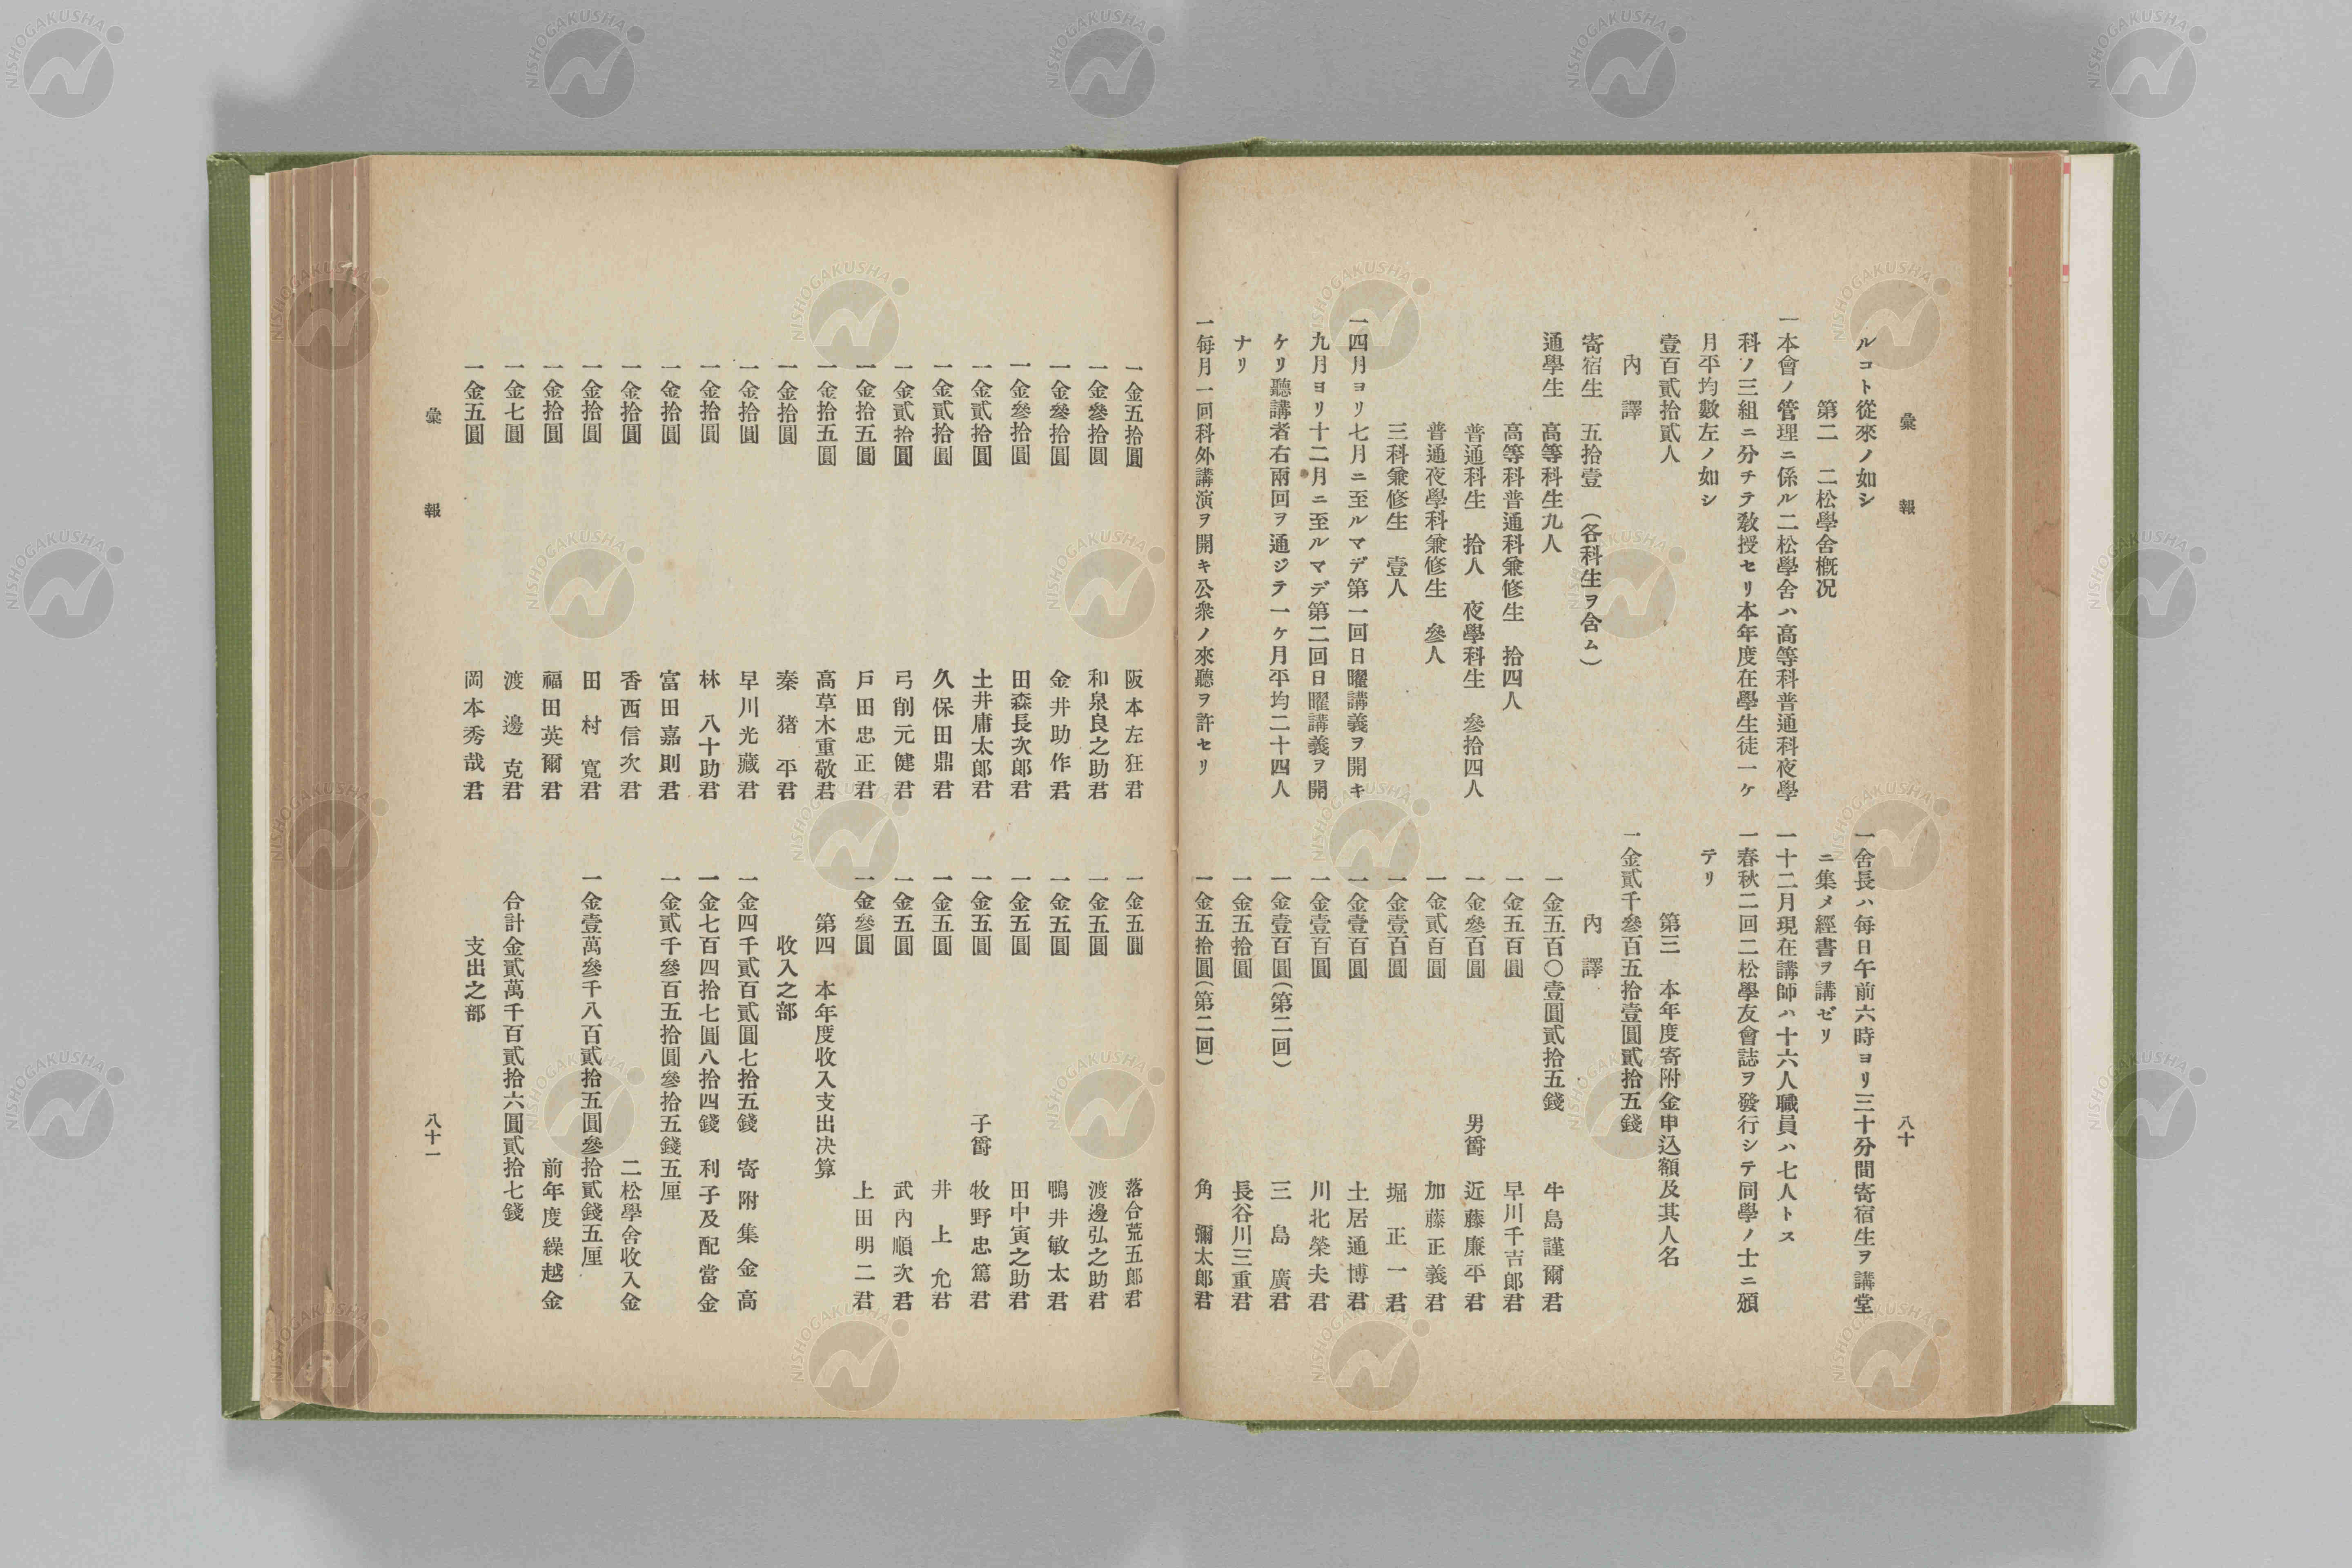 彙報
八十
ルコト從來ノ如シ
第二 二松學舍概况
一本會ノ管理ニ係ル二松學舍ハ高等科普通科夜學
科ノ三組ニ分チテ敎授セリ本年度在學生徒一ケ
月平均數左ノ如シ
壹百貳拾貳人
內譯
寄宿生 五拾壹 (各科生ヲ含ム)
通學生 高等科生九人
高等科普通科兼修生 拾四人
普通科生 拾人 夜學科生 參拾四人
普通夜學科兼修生 參人
三科兼修生 壹人
一四月ヨリ七月ニ至ルマデ第一回日曜講義ヲ開キ
九月ヨリ十二月ニ至ルマデ第二回日曜講義ヲ開
ケリ聽講者右兩回ヲ通ジテ一ケ月平均二十四人
ナリ
一每月一回科外講演ヲ開キ公衆ノ來聽ヲ許セリ
一舍長ハ每日午前六時ヨリ三十分間寄宿生ヲ講堂
ニ集メ經書ヲ講ゼリ
一十二月現在講師ハ十六人職員ハ七人トス
一春秋二回二松學友會誌ヲ發行シテ同學ノ士ニ頒
テリ
第三 本年度寄附金申込額及其人名
一金貳千參百五拾壹圓貳拾五錢
內譯
一金五百〇壹圓貳拾五錢 牛島謹爾君
一金五百圓 早川千吉郎君
一金參百圓 男爵 近藤廉平君
一金貳百圓 加藤正義君
一金壹百圓 堀正一君
一金壹百圓 土居通博君
一金壹百圓 川北榮夫君
一金壹百圓(第二回) 三島廣君
一金五拾圓 長谷川三重君
一金五拾圓(第二回) 角彌太郎君
一金五拾圓 阪本左狂君
一金參拾圓 和泉良之助君
一金參拾圓 金井助作君
一金參拾圓 田森長次郎君
一金貳拾圓 土井庸太郎君
一金貳拾圓 久保田鼎君
一金貳拾圓 弓削元健君
一金拾五圓 戶田忠正君
一金拾五圓 高草木重敬君
一金拾圓 秦猪平君
一金拾圓 早川光藏君
一金拾圓 林八十助君
一金拾圓 富田嘉則君
一金拾圓 香西信次君
一金拾圓 田村寬君
一金拾圓 福田英爾君
一金七圓 渡邊克君
一金五圓 岡本秀哉君
一金五圓 落合荒五郎君
一金五圓 渡邊弘之助君
一金五圓 鴨井敏太君
一金五圓 田中寅之助君
一金五圓 子爵 牧野忠篤君
一金五圓 井上允君
一金五圓 武內順次君
一金參圓 上田明二君
第四 本年度收入支出決算
收入之部
一金四千貳百貳圓七拾五錢 寄附集金高
一金七百四拾七圓八拾四錢 利子及配當金
一金貳千參百五拾圓參拾五錢五厘
二松學舍收入金
一金壹萬參千八百貳拾五圓參拾貳錢五厘
前年度繰越金
合計金貳萬千百貳拾六圓貳拾七錢
支出之部
彙報
八十一
NISHOGAKUSHA